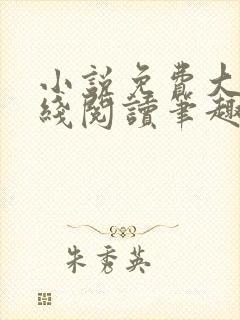 小說免費大
綫閱讀筆趣
朱秀英